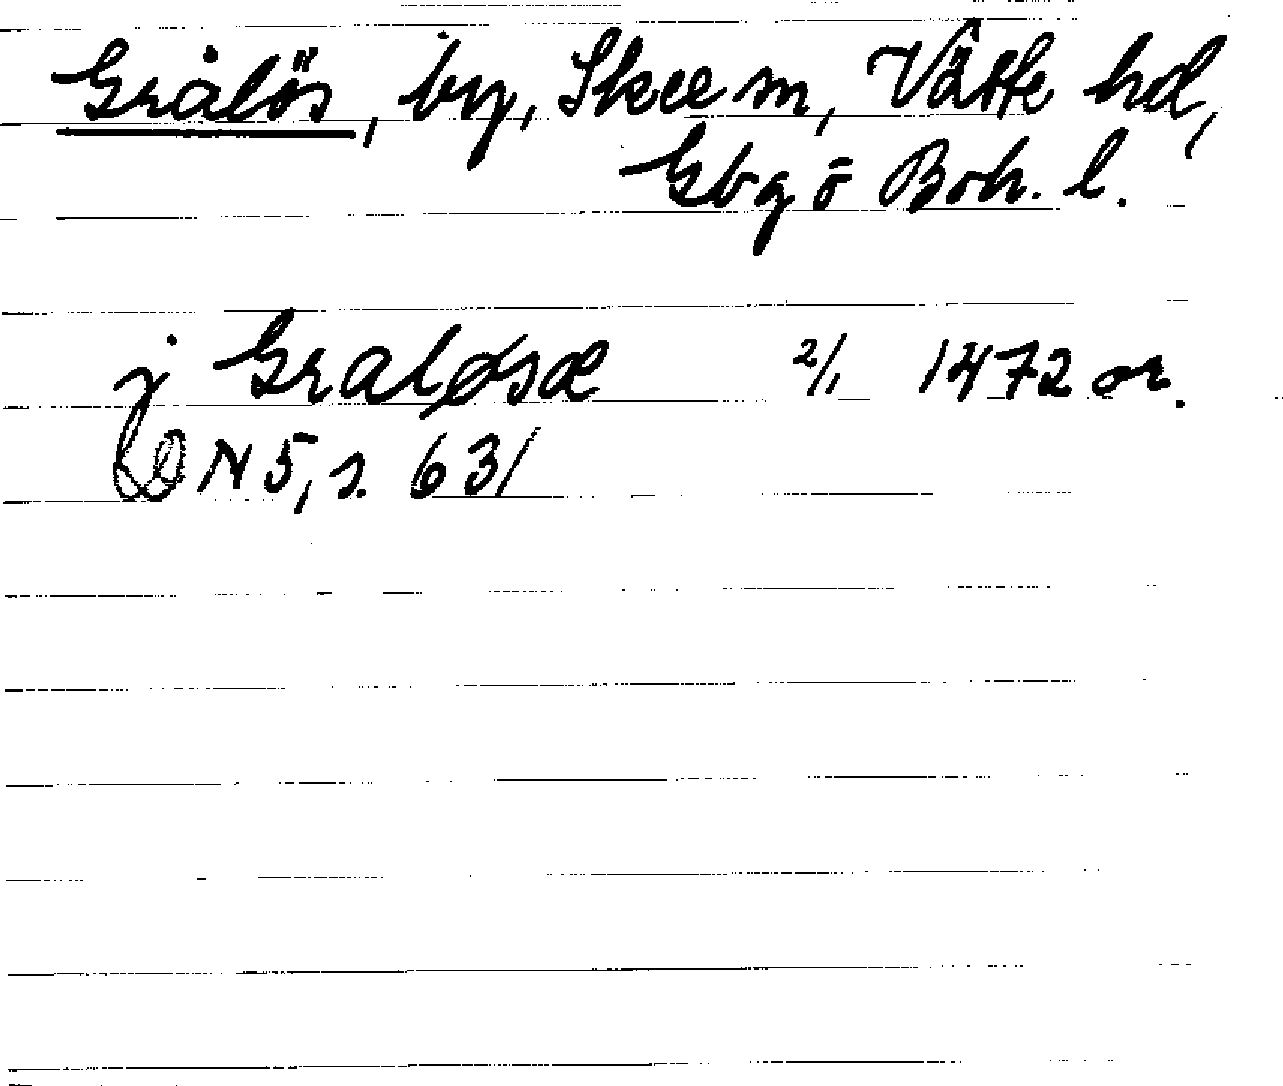 Grålös, by, Skee sn, Vätte hd,
Gbg o Boh. l.
j Graløsæ 2/1 1472 or.
DN 5, s. 631